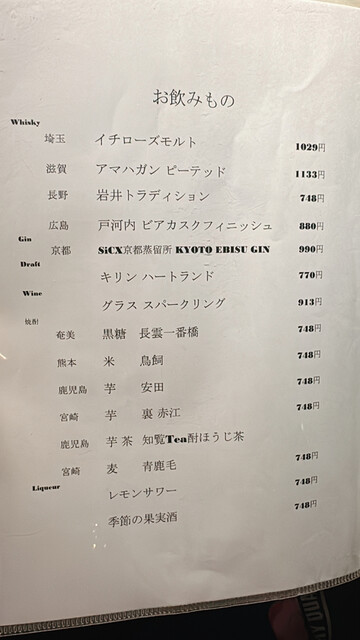 お飲みもの
Whisky
埼玉 イチローズモルト 1029円
滋賀 アマハガン ピーテッド 1133円
長野 岩井トラディション 748円
広島 戸河内 ビアカスクフィニッシュ 880円
Gin
京都 SiCX京都蒸留所 KYOTO EBISU GIN 990円
Draft
キリン ハートランド 770円
Wine
グラス スパークリング 913円
焼酎
奄美 黒糖 長雲一番橋 748円
熊本 米 鳥飼 748円
鹿児島 芋 安田 748円
宮崎 芋 裏 赤江 748円
鹿児島 芋 茶 知覧Tea酎ほうじ茶
宮崎 麦 青鹿毛 748円
Liqueur
レモンサワー 748円
季節の果実酒 748円